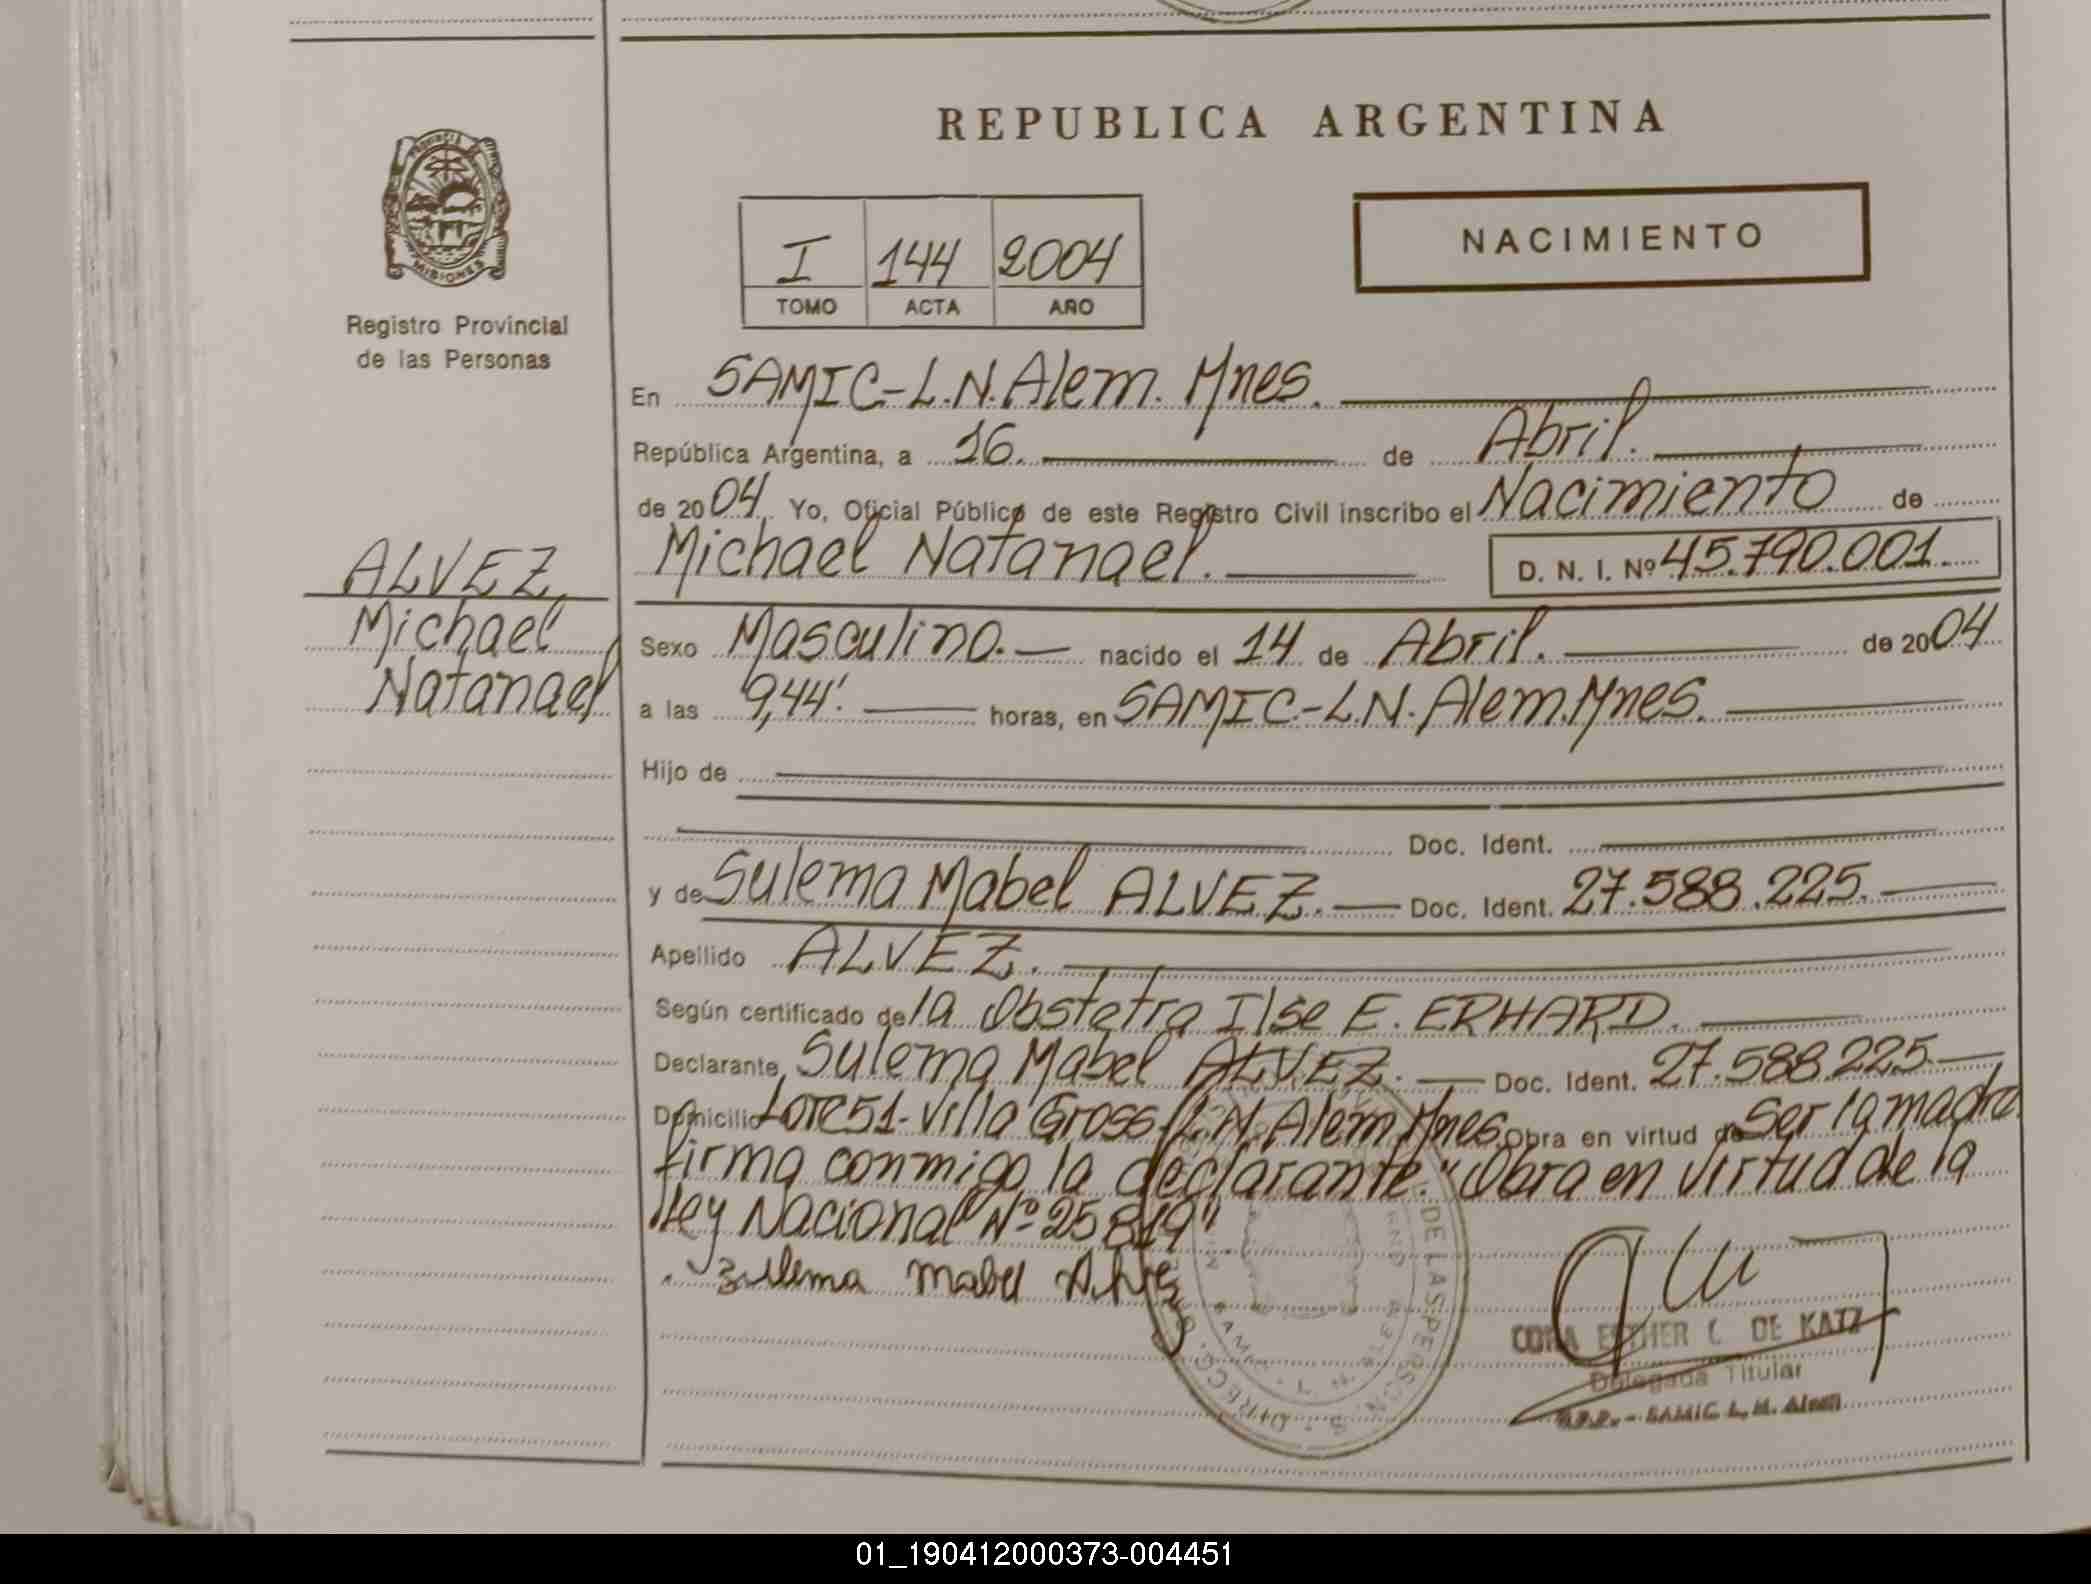 REPUBLICA ARGENTINA
PROVINCIA
MISIONES
Registro Provincial
de las Personas
I 144 2004
TOMO ACTA AÑO
NACIMIENTO
En SAMIC-L.N.Alem. Mnes.
República Argentina, a 16. de Abril.
de 2004 Yo, Oficial Público de este Registro Civil inscribo el Nacimiento de
Michael Natanael. D. N. I. Nº 45.790.001.
ALVEZ
Michael
Natanael
Sexo Masculino. nacido el 14 de Abril. de 2004
a las 9,44'. horas, en SAMIC.-L.N. Alem.Mnes.
Hijo de
Doc. Ident.
y de Sulema Mabel ALVEZ. Doc. Ident. 27.588.225.
Apellido ALVEZ.
Según certificado de la Obstetra Ilse E. ERHARD.
Declarante, Sulema Mabel ALVEZ. Doc. Ident. 27.588.225.
Domicilio Lote 51-Villa Gross-L.N.Alem Mnes. Obra en virtud de Ser la madre
firma conmigo la declarante. "Obra en virtud de la
ley Nacional Nº 25819"
Zulema Mabel Alvez
DE LAS PERSONAS
CORA ESTHER C. DE KATZ
Delegada Titular
R.P.P. - SAMIC L. N. Alem
01_190412000373-004451